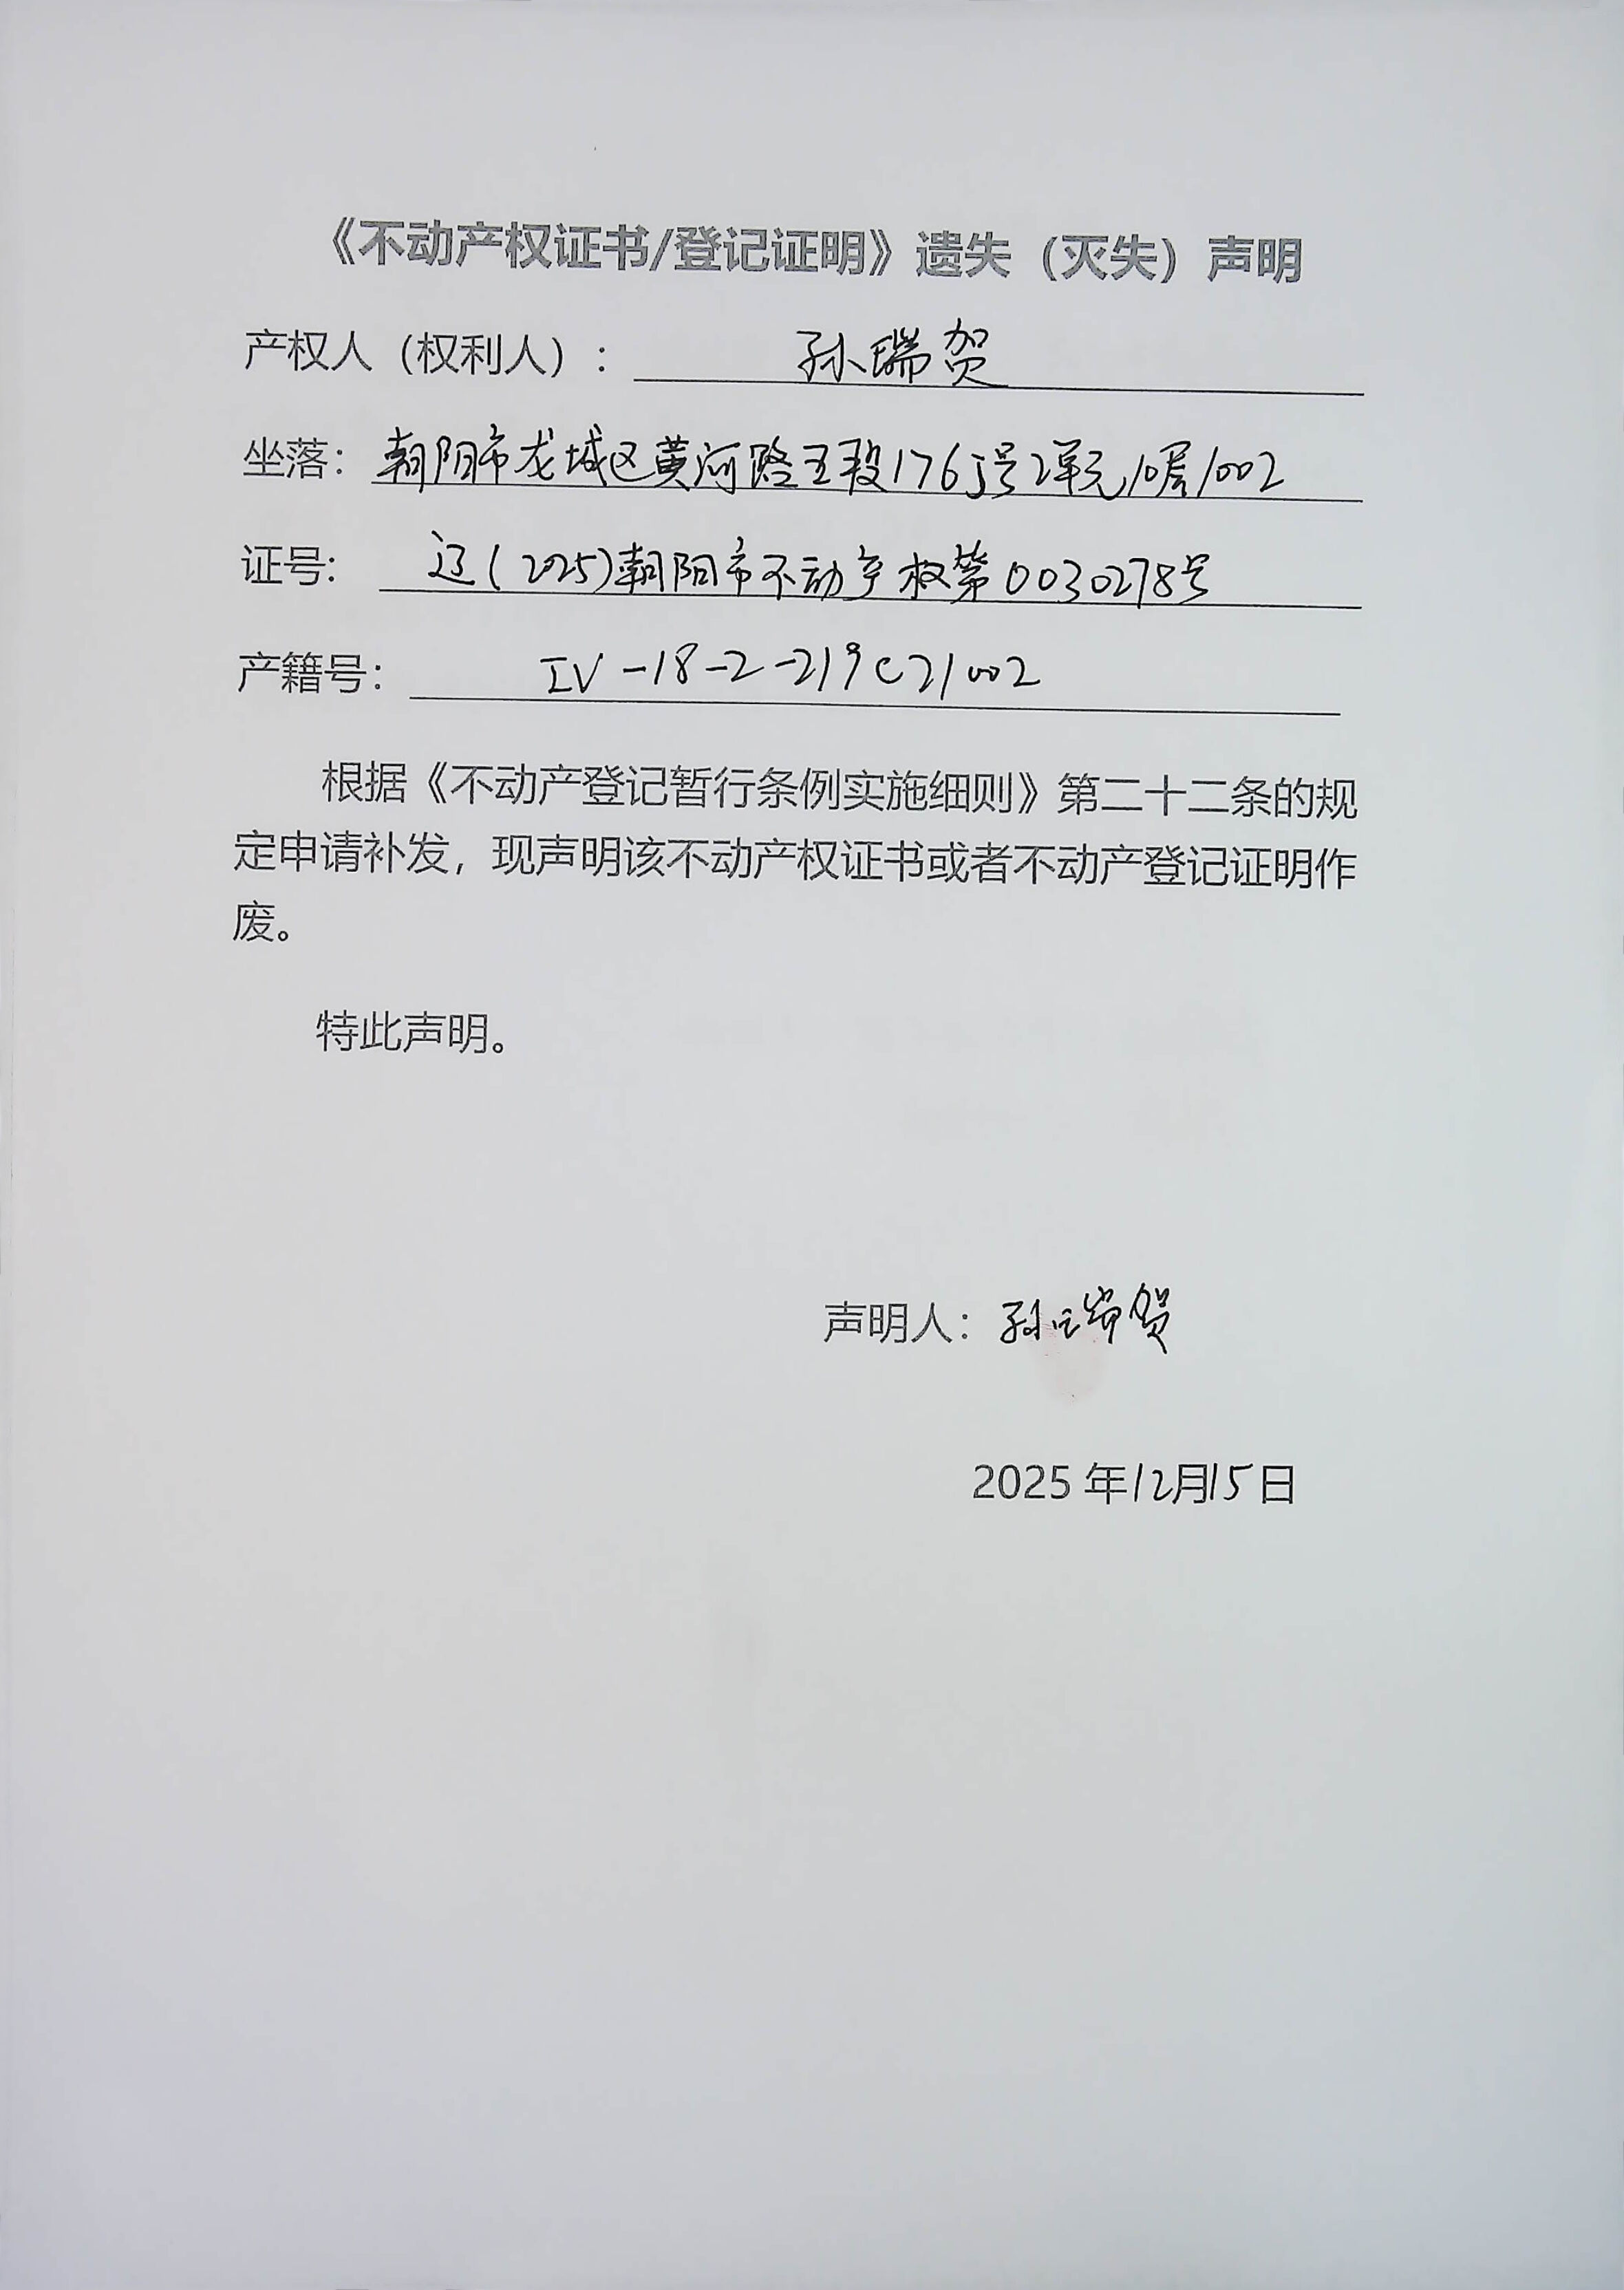 《不动产权证书/登记证明》遗失（灭失）声明
产权人（权利人）：孙瑞贺
坐落：朝阳市龙城区黄河路五段176J号2单元10层1002
证号：辽(2025)朝阳市不动产权第0030278号
产籍号：IV-18-2-219C21002
根据《不动产登记暂行条例实施细则》第二十二条的规
定申请补发，现声明该不动产权证书或者不动产登记证明作
废。
特此声明。
声明人：孙瑞贺
2025年12月15日